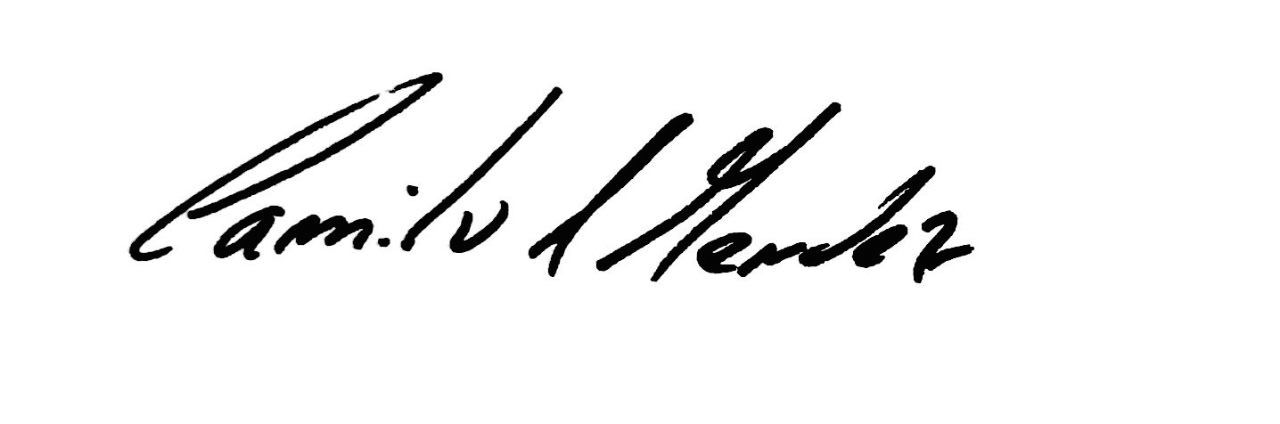 Camilo A Mendez